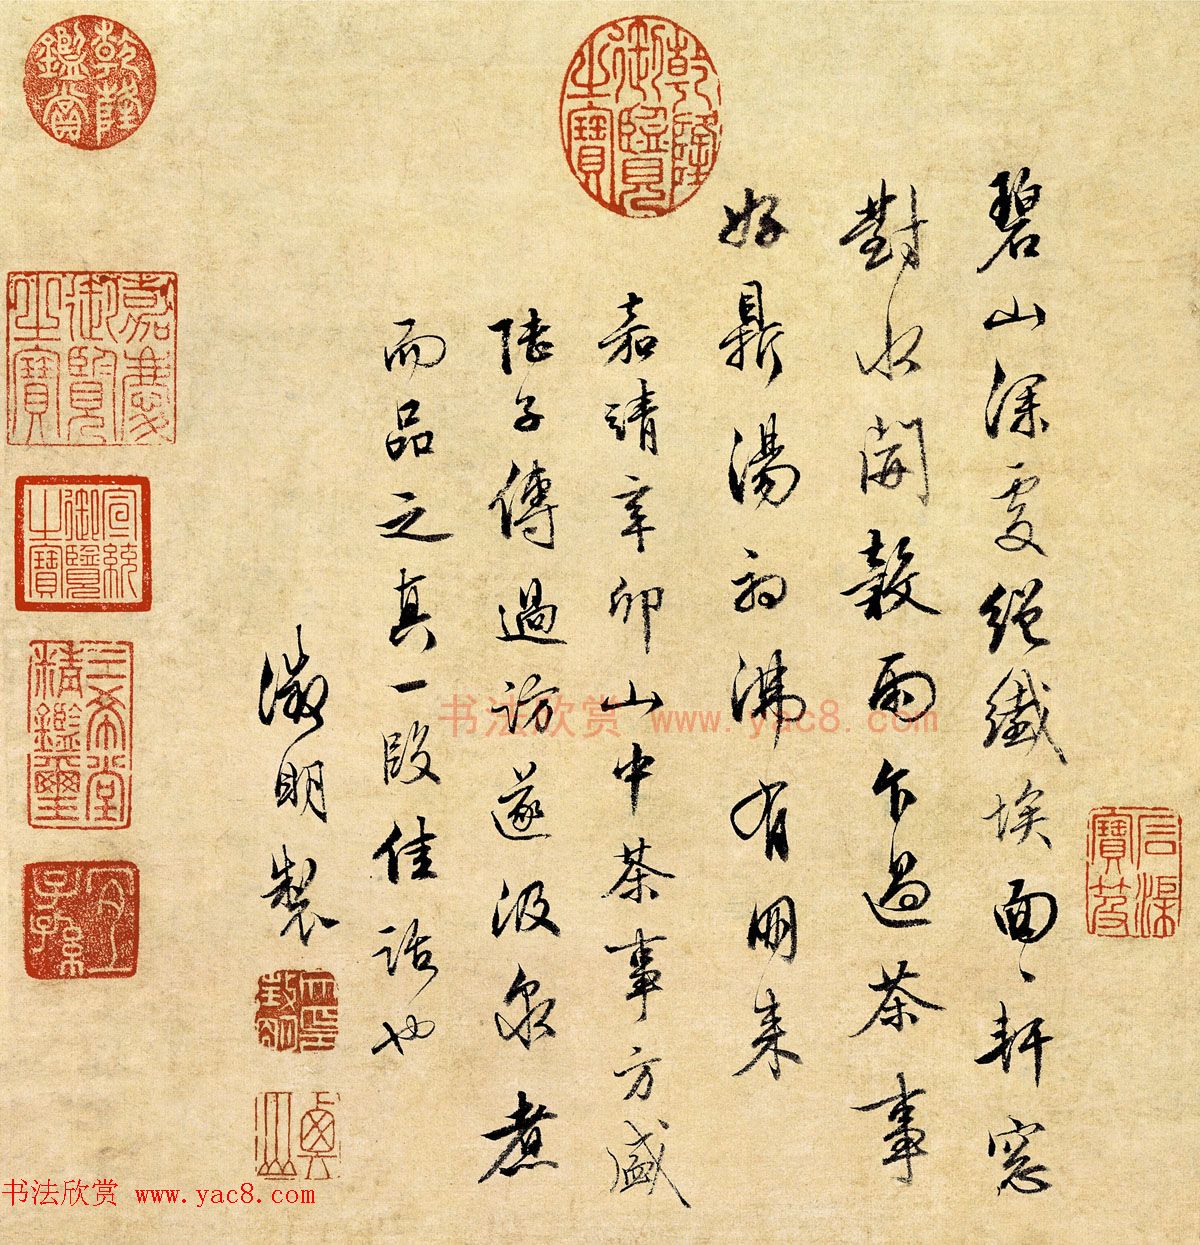 乾隆御覽之寶
石渠寶笈
碧山深處絕纖埃面〻軒窓
對水開穀雨乍過茶事
好鼎湯初沸有朋來
嘉靖辛卯山中茶事方盛
陸子傅過訪遂汲泉煮
而品之真一段佳話也
徵明製
乾隆鑑賞
嘉慶御覽之寶
宣統御覽之寶
三希堂精鑑璽
宜子孫
书法欣赏 www.yac8.com
书法欣赏 www.yac8.com